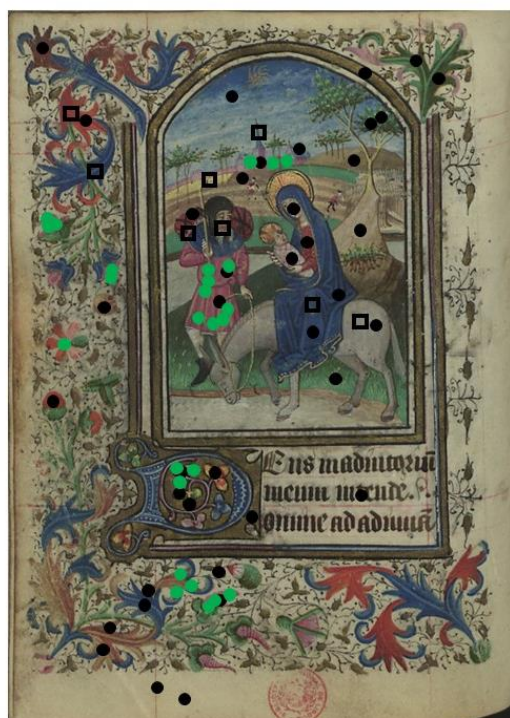 DEus in adiutoriū
meum intende.
omine ad adiuuā